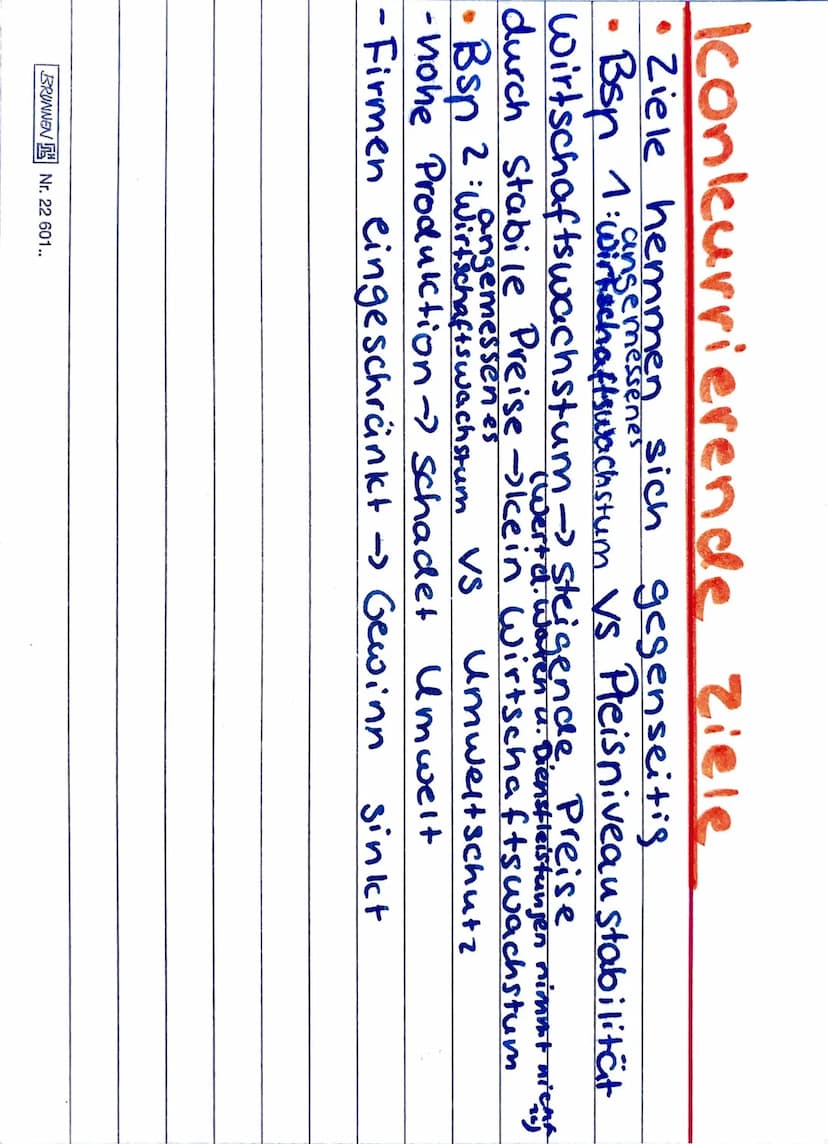 Konkurrierende Ziele
• Ziele hemmen sich gegenseitig
angemessenes
• Bsp 1: Wirtschaftswachstum vs Preisniveaustabilität
Wirtschaftswachstum → steigende Preise
(Wert d. Waren u. Dienstleistungen nimmt nicht zu)
durch stabile Preise → kein Wirtschaftswachstum
angemessenes
• Bsp 2: Wirtschaftswachstum vs Umweltschutz
- hohe Produktion → schadet Umwelt
- Firmen eingeschränkt → Gewinn sinkt
BRUNNEN Nr. 22 601..